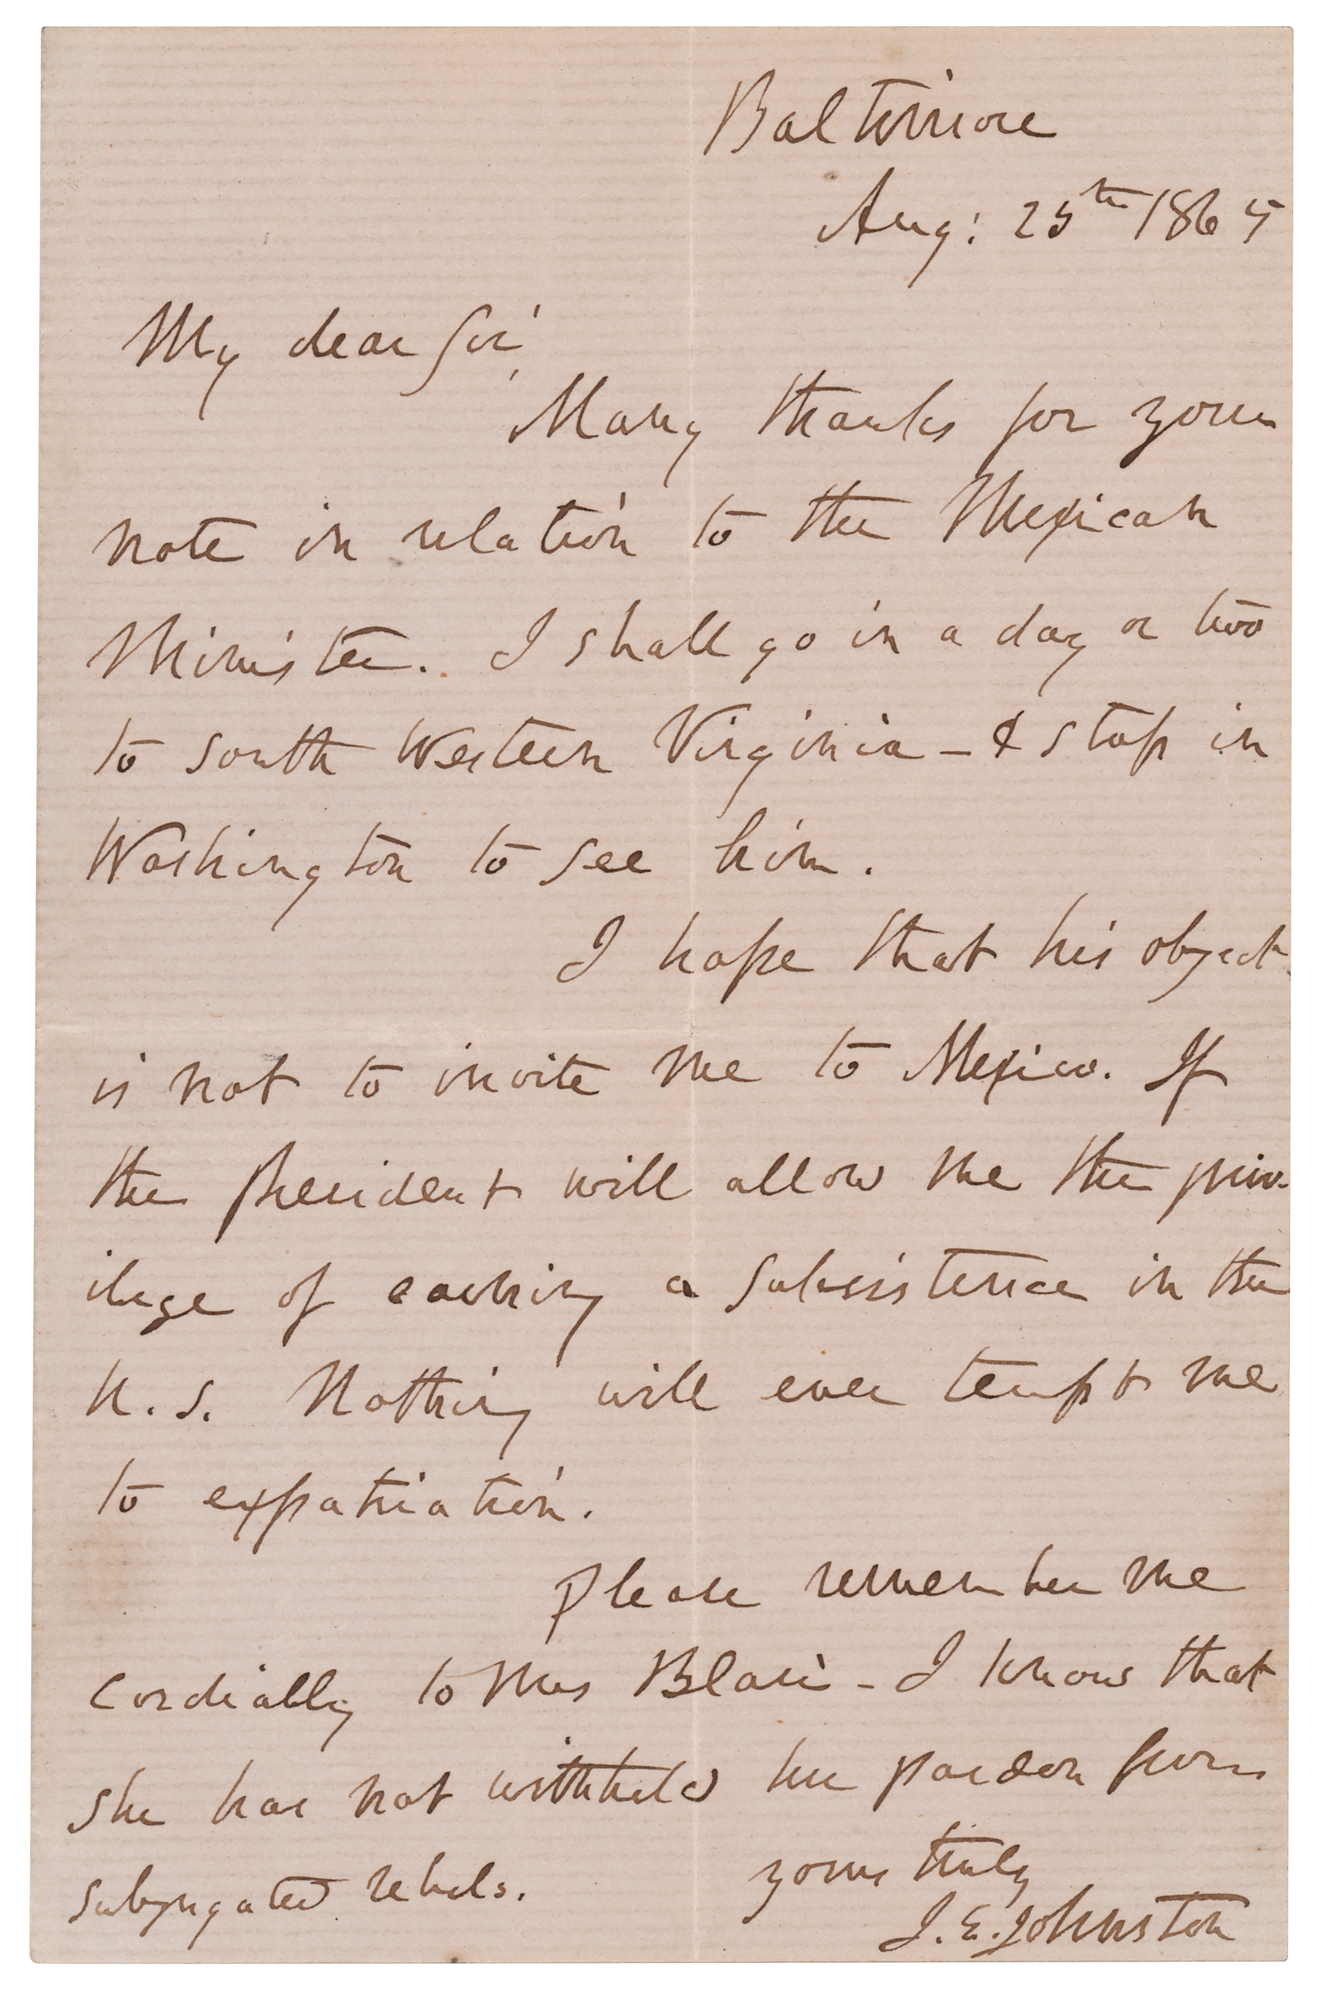 Baltimore
Aug: 25th 1865
My dear Sir,
Many thanks for your
note in relation to the Mexican
Minister. I shall go in a day or two
to South Western Virginia - & stop in
Washington to see him.
I hope that his object
is not to invite me to Mexico. If
the President will allow me the priv-
ilege of earning a subsistence in the
U.S. Nothing will ever tempt me
to expatriation.
Please remember me
cordially to Mrs Blair - I know that
she has not withheld her pardon from
subjugated rebels.
yours truly
J. E. Johnston